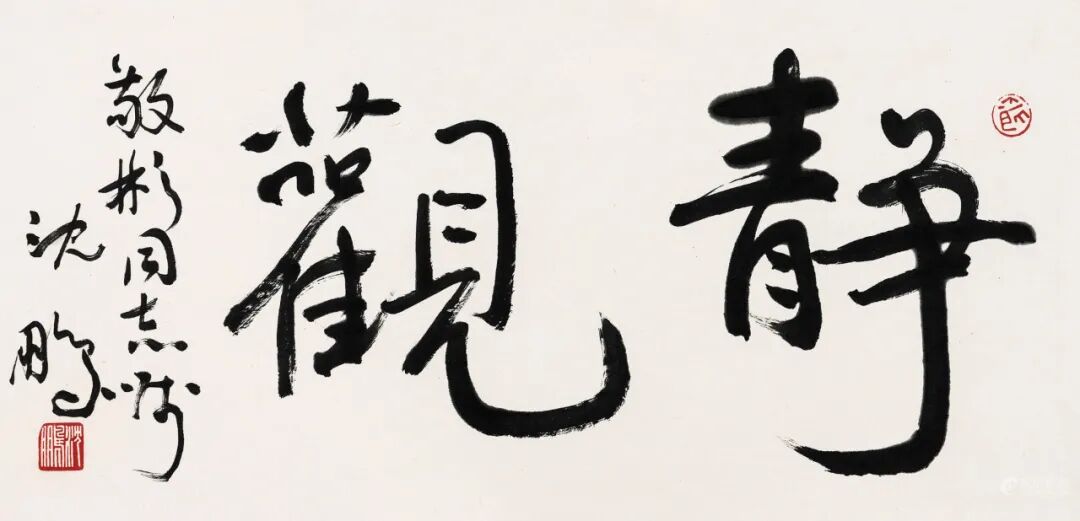 靜觀
敬彬同志嘱
沈鹏
沈鵬